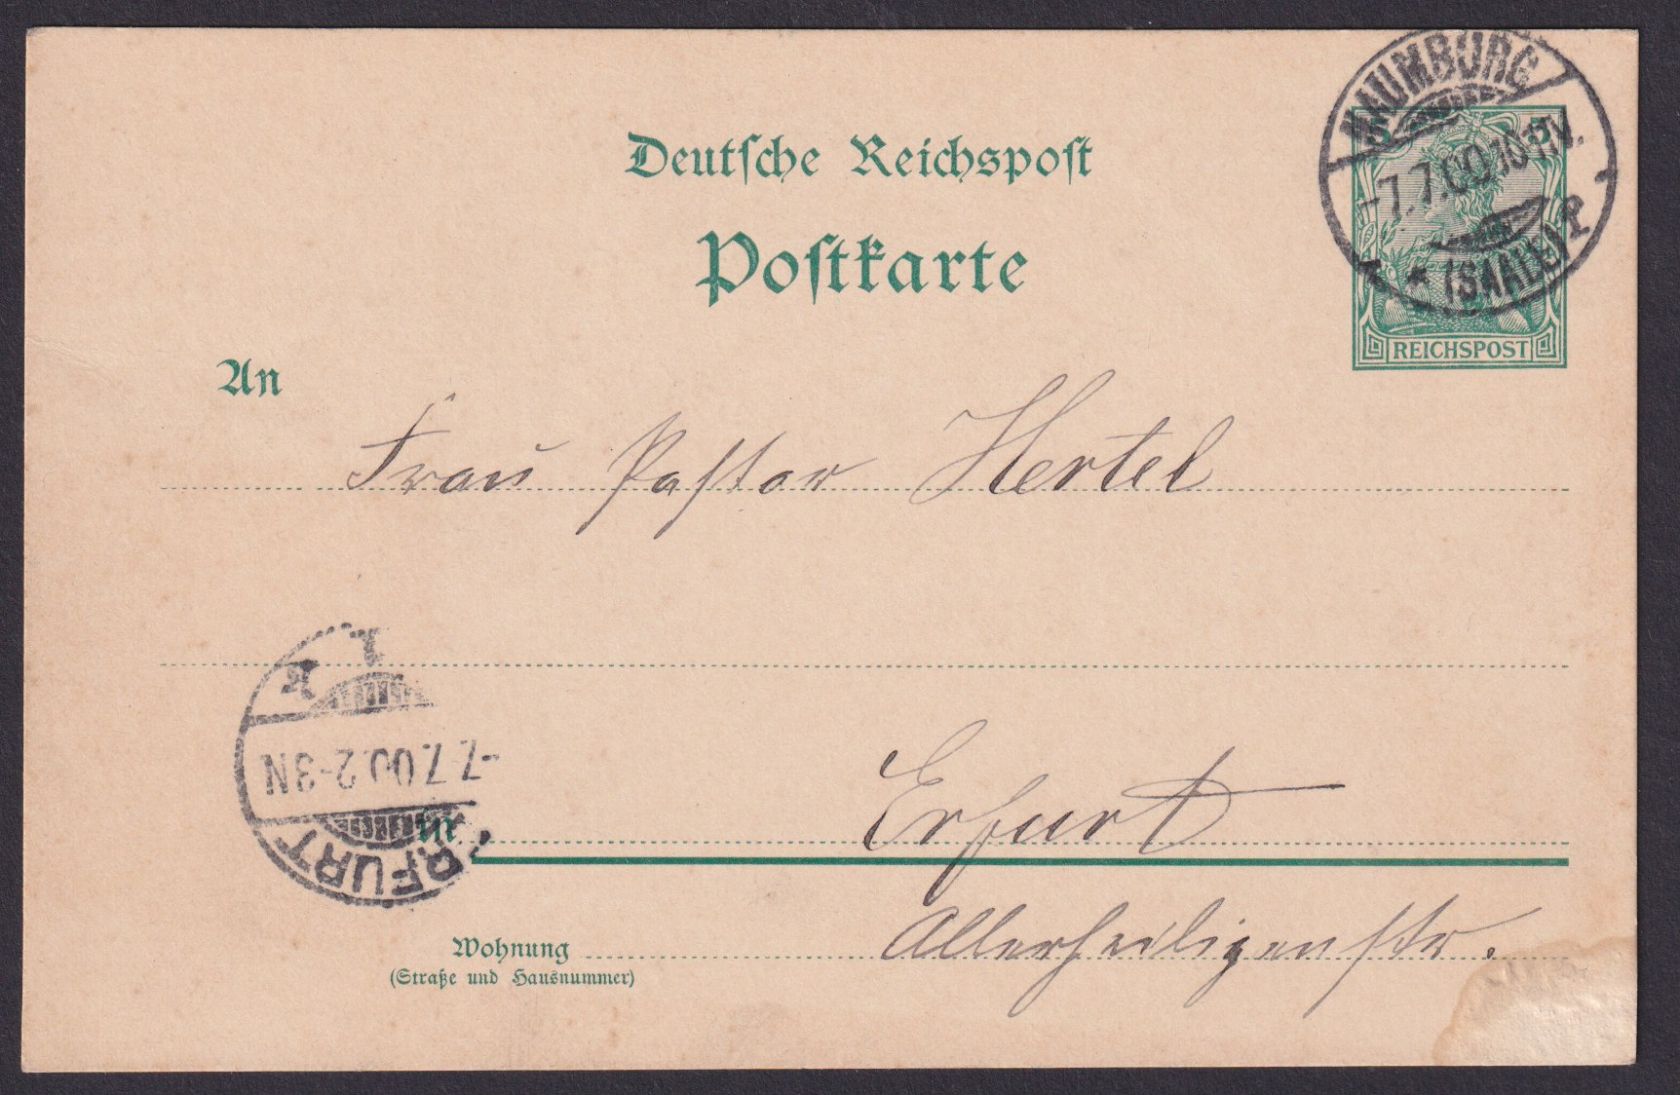 Deutsche Reichspost
Postkarte
NAUMBURG
-7.7.00.10-11V.
* (SAALE) 2
REICHSPOST
An
Frau Pastor Hertel
1
-7.7.00.2-3N
ERFURT
in
Erfurt
Wohnung Allerheiligenstr.
(Straße und Hausnummer)